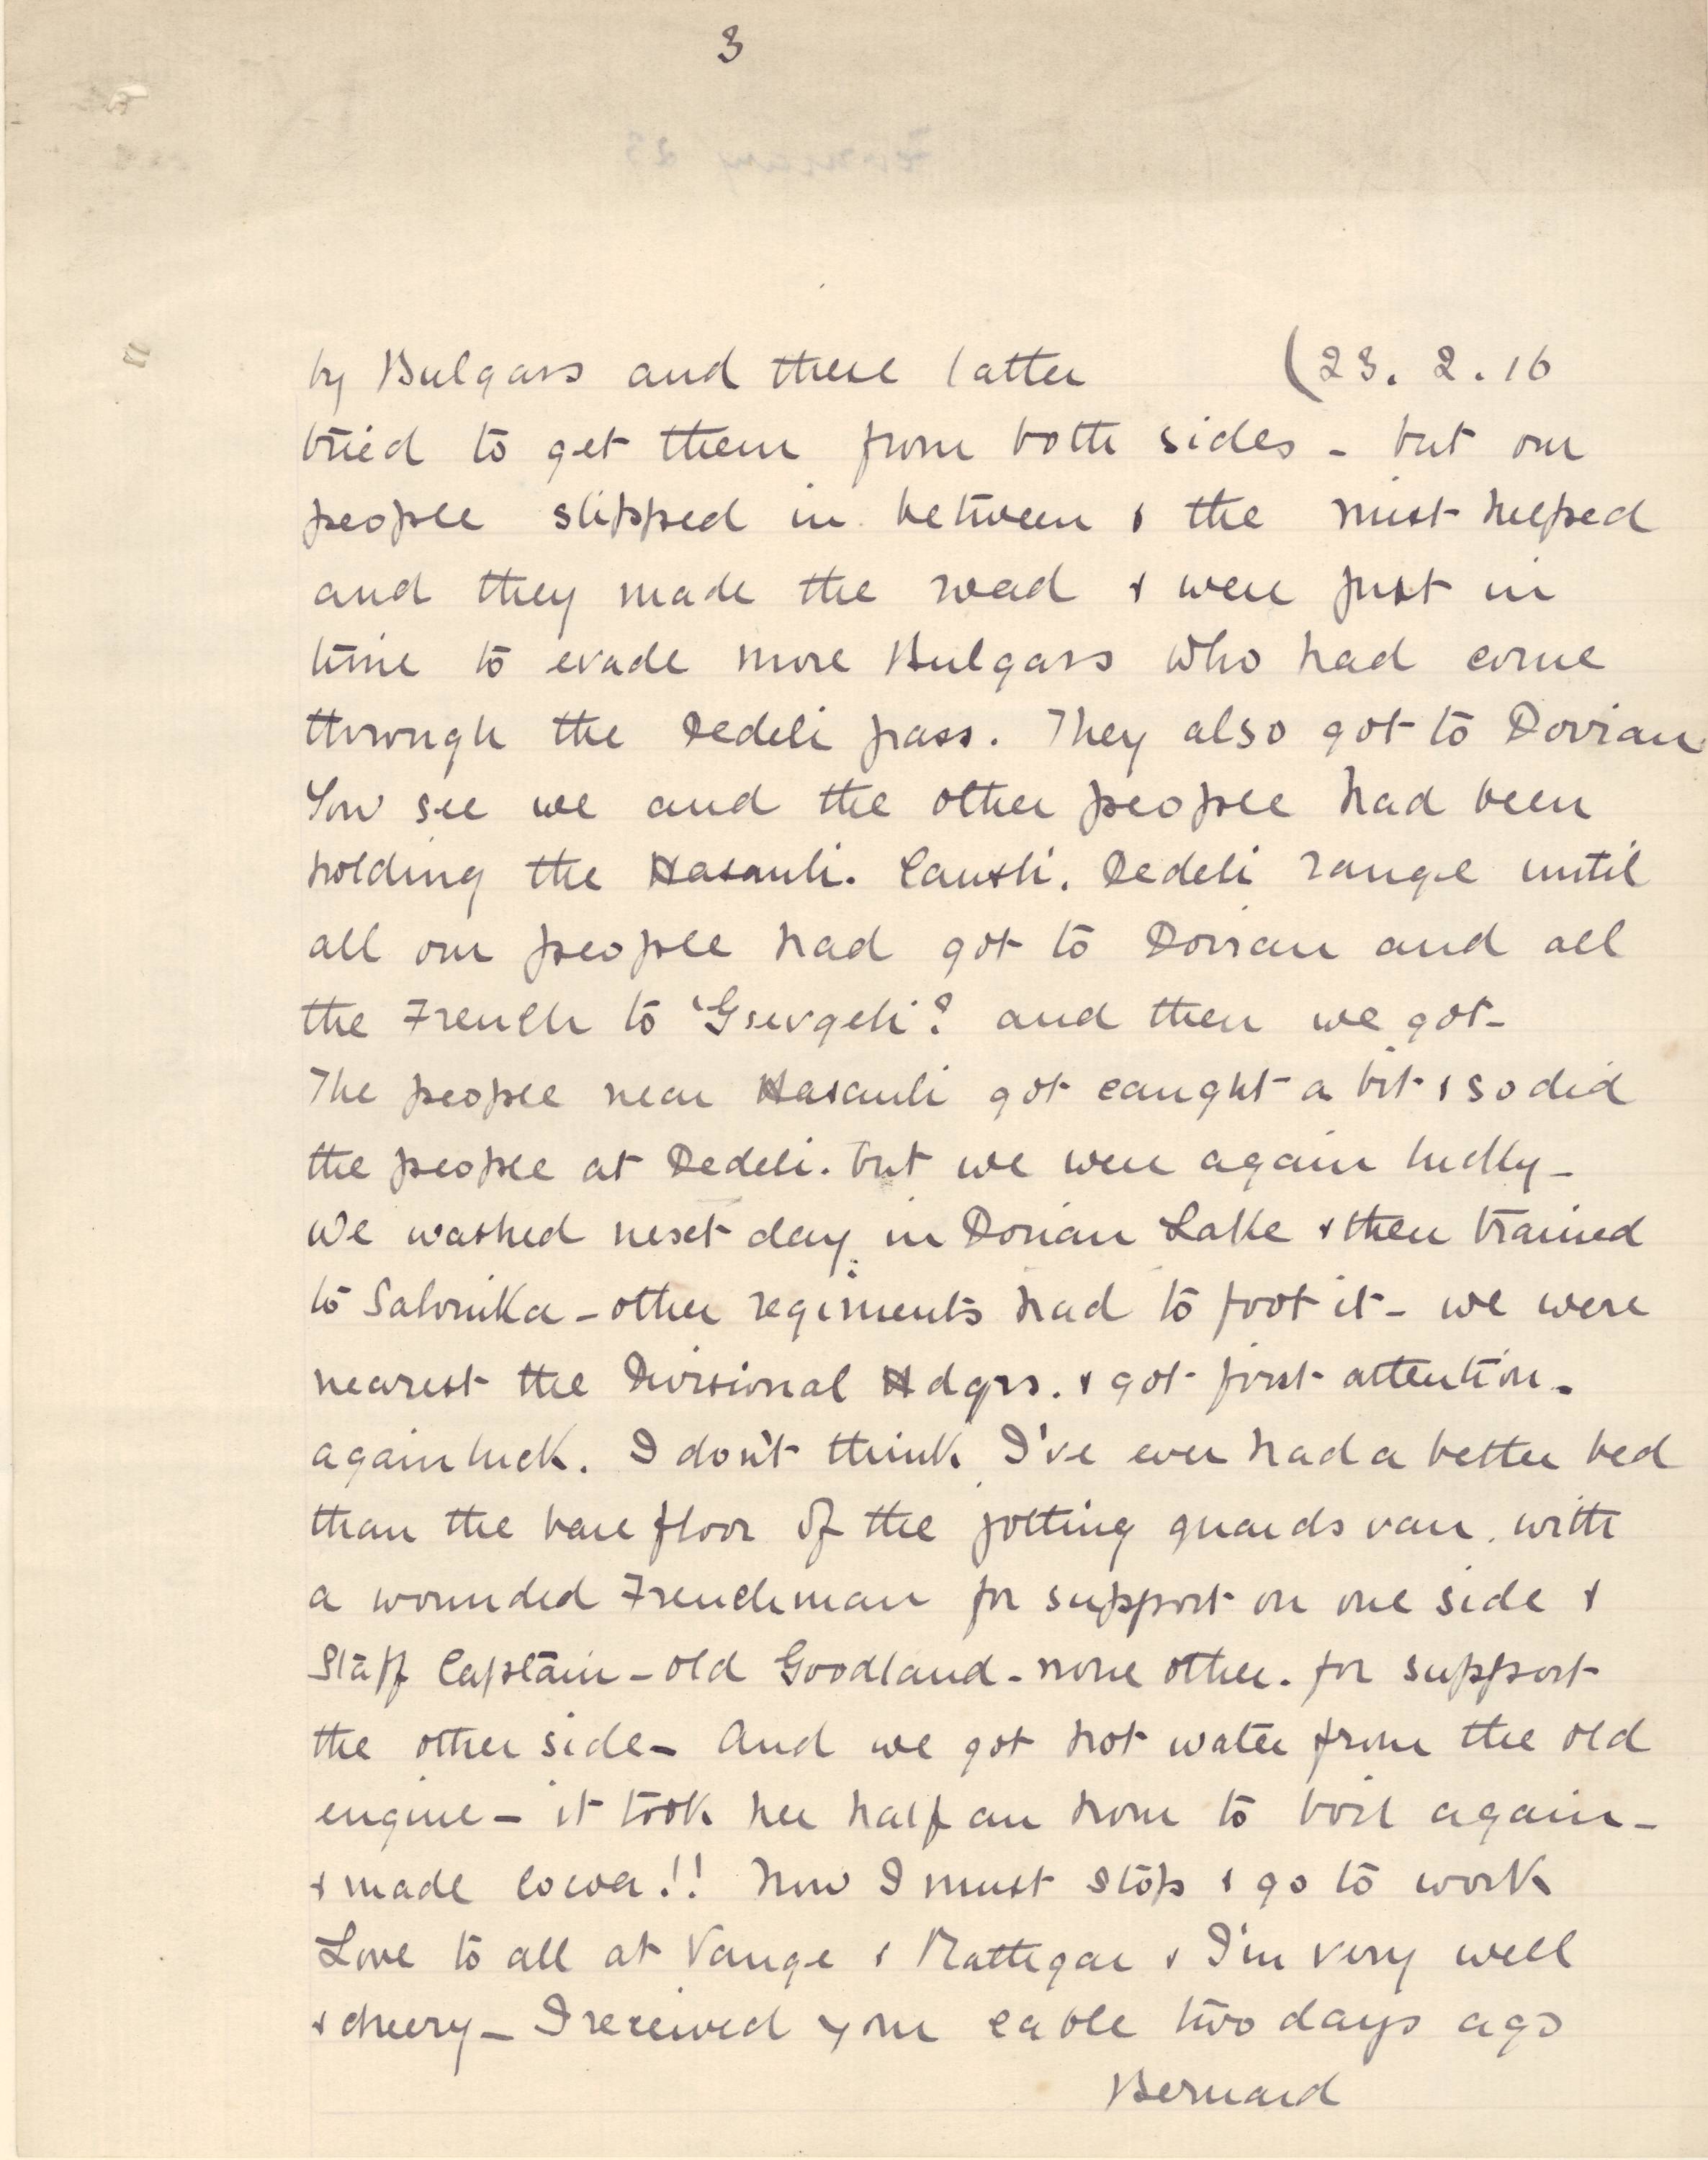 3
by Bulgars and these latter (23. 2. 16
tried to get them from both sides - but our
people slipped in between & the mist helped
and they made the road & were just in
time to evade more Bulgars who had come
through the Dedeli pass. They also got to Dorian
You see we and the other people had been
holding the Hasanli. Causli. Dedeli range until
all our people had got to Doiran and all
the French to 'Gievgeli'? and then we got-
The people near Hasanli got caught a bit & so did
the people at Dedeli. but we were again lucky -
We washed next day in Dorian Lake & then trained
to Salonika - other regiments had to foot it - we were
nearest the Divisional Hdqrs. & got first attention -
again luck. I don't think I've ever had a better bed
than the bare floor of the jolting guards van. with
a wounded Frenchman for support on one side &
Staff Captain - old Goodland - none other. for support
the other side - And we got hot water from the old
engine - it took her half an hour to boil again -
& made cocoa!! Now I must stop & go to work
Love to all at Vange & Mattegar & I'm very well
& cheery - I received your cable two days ago
Bernard